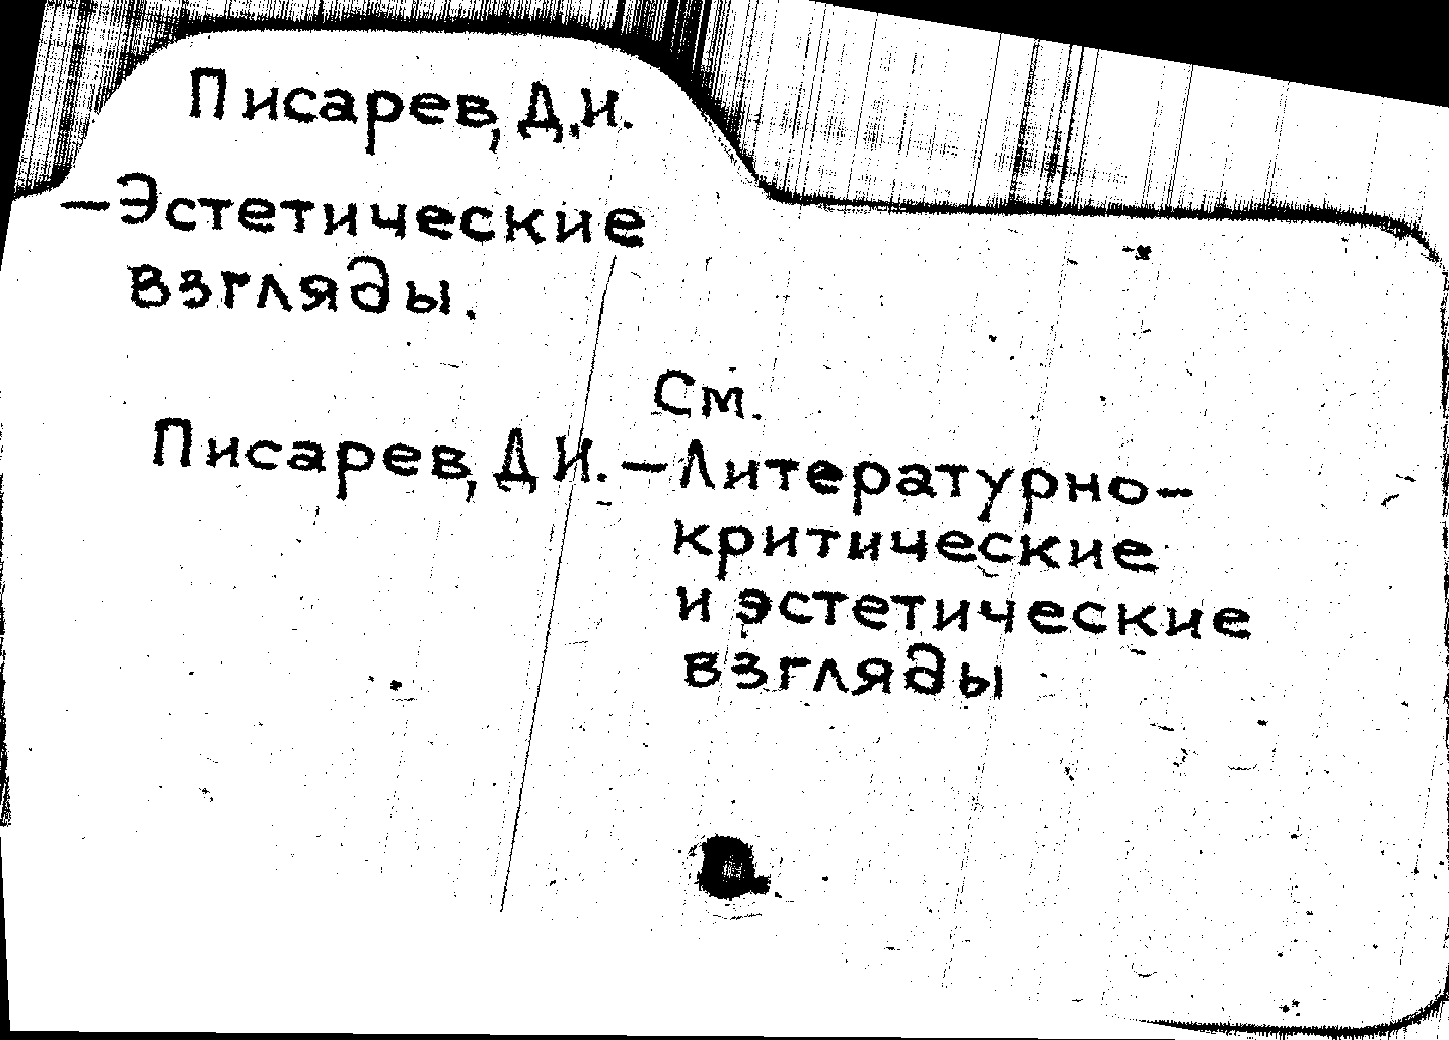 Писарев, Д.И.
—Эстетические
взгляды.
См.
Писарев, Д И. — Литературно-
критические
и эстетические
взгляды